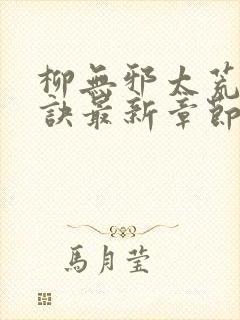 柳無邪太荒
訣最新章節
馬月瑩